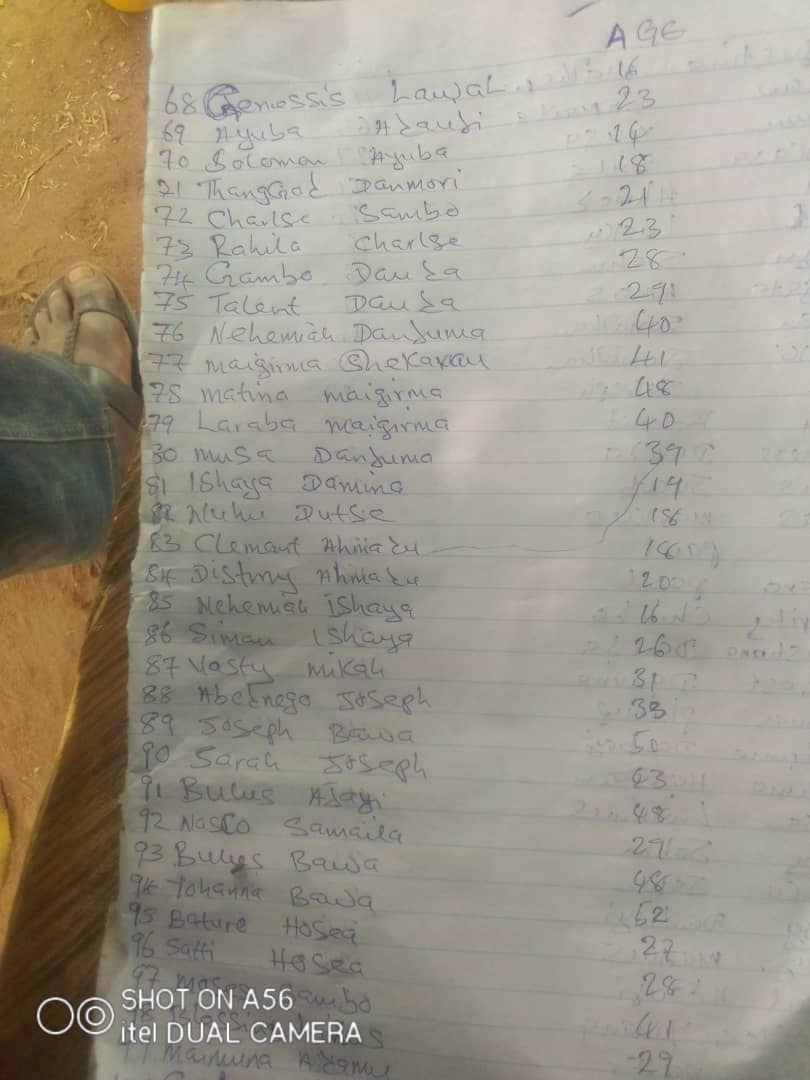 AGE
68 Genossis Lawal 16
69 Ayuba Adaudi 23
70 Solomon Ayuba 14
71 ThangGod Danmori 18
72 Charlse Sambo 21
73 Rahila Charlse 23
74 Gambo Dauda 28
75 Talent Dauda 29
76 Nehemiah Danjuma 40
77 maigirma Shekarau 41
78 matina maigirma 48
79 Laraba maigirma 40
80 musa Danjuma 39
81 Ishaya Damina 19
82 Nuhu Dutse 18
83 Clement Ahmadu 18
84 Distiny Ahmadu 20
85 Nehemiah Ishaya 16
86 Simau Ishaya 26
87 Vasty mikah 31
88 Abednego Joseph 33
89 Joseph Bawa 50
90 Sarah Joseph 43
91 Bulus Ajayi 48
92 Nasco Samaila 29
93 Bulus Bawa 48
94 Yohanna Bawa 52
95 Bature Hosea 27
96 Satti Hosea 28
97 Sambo 41
29
SHOT ON A56
itel DUAL CAMERA